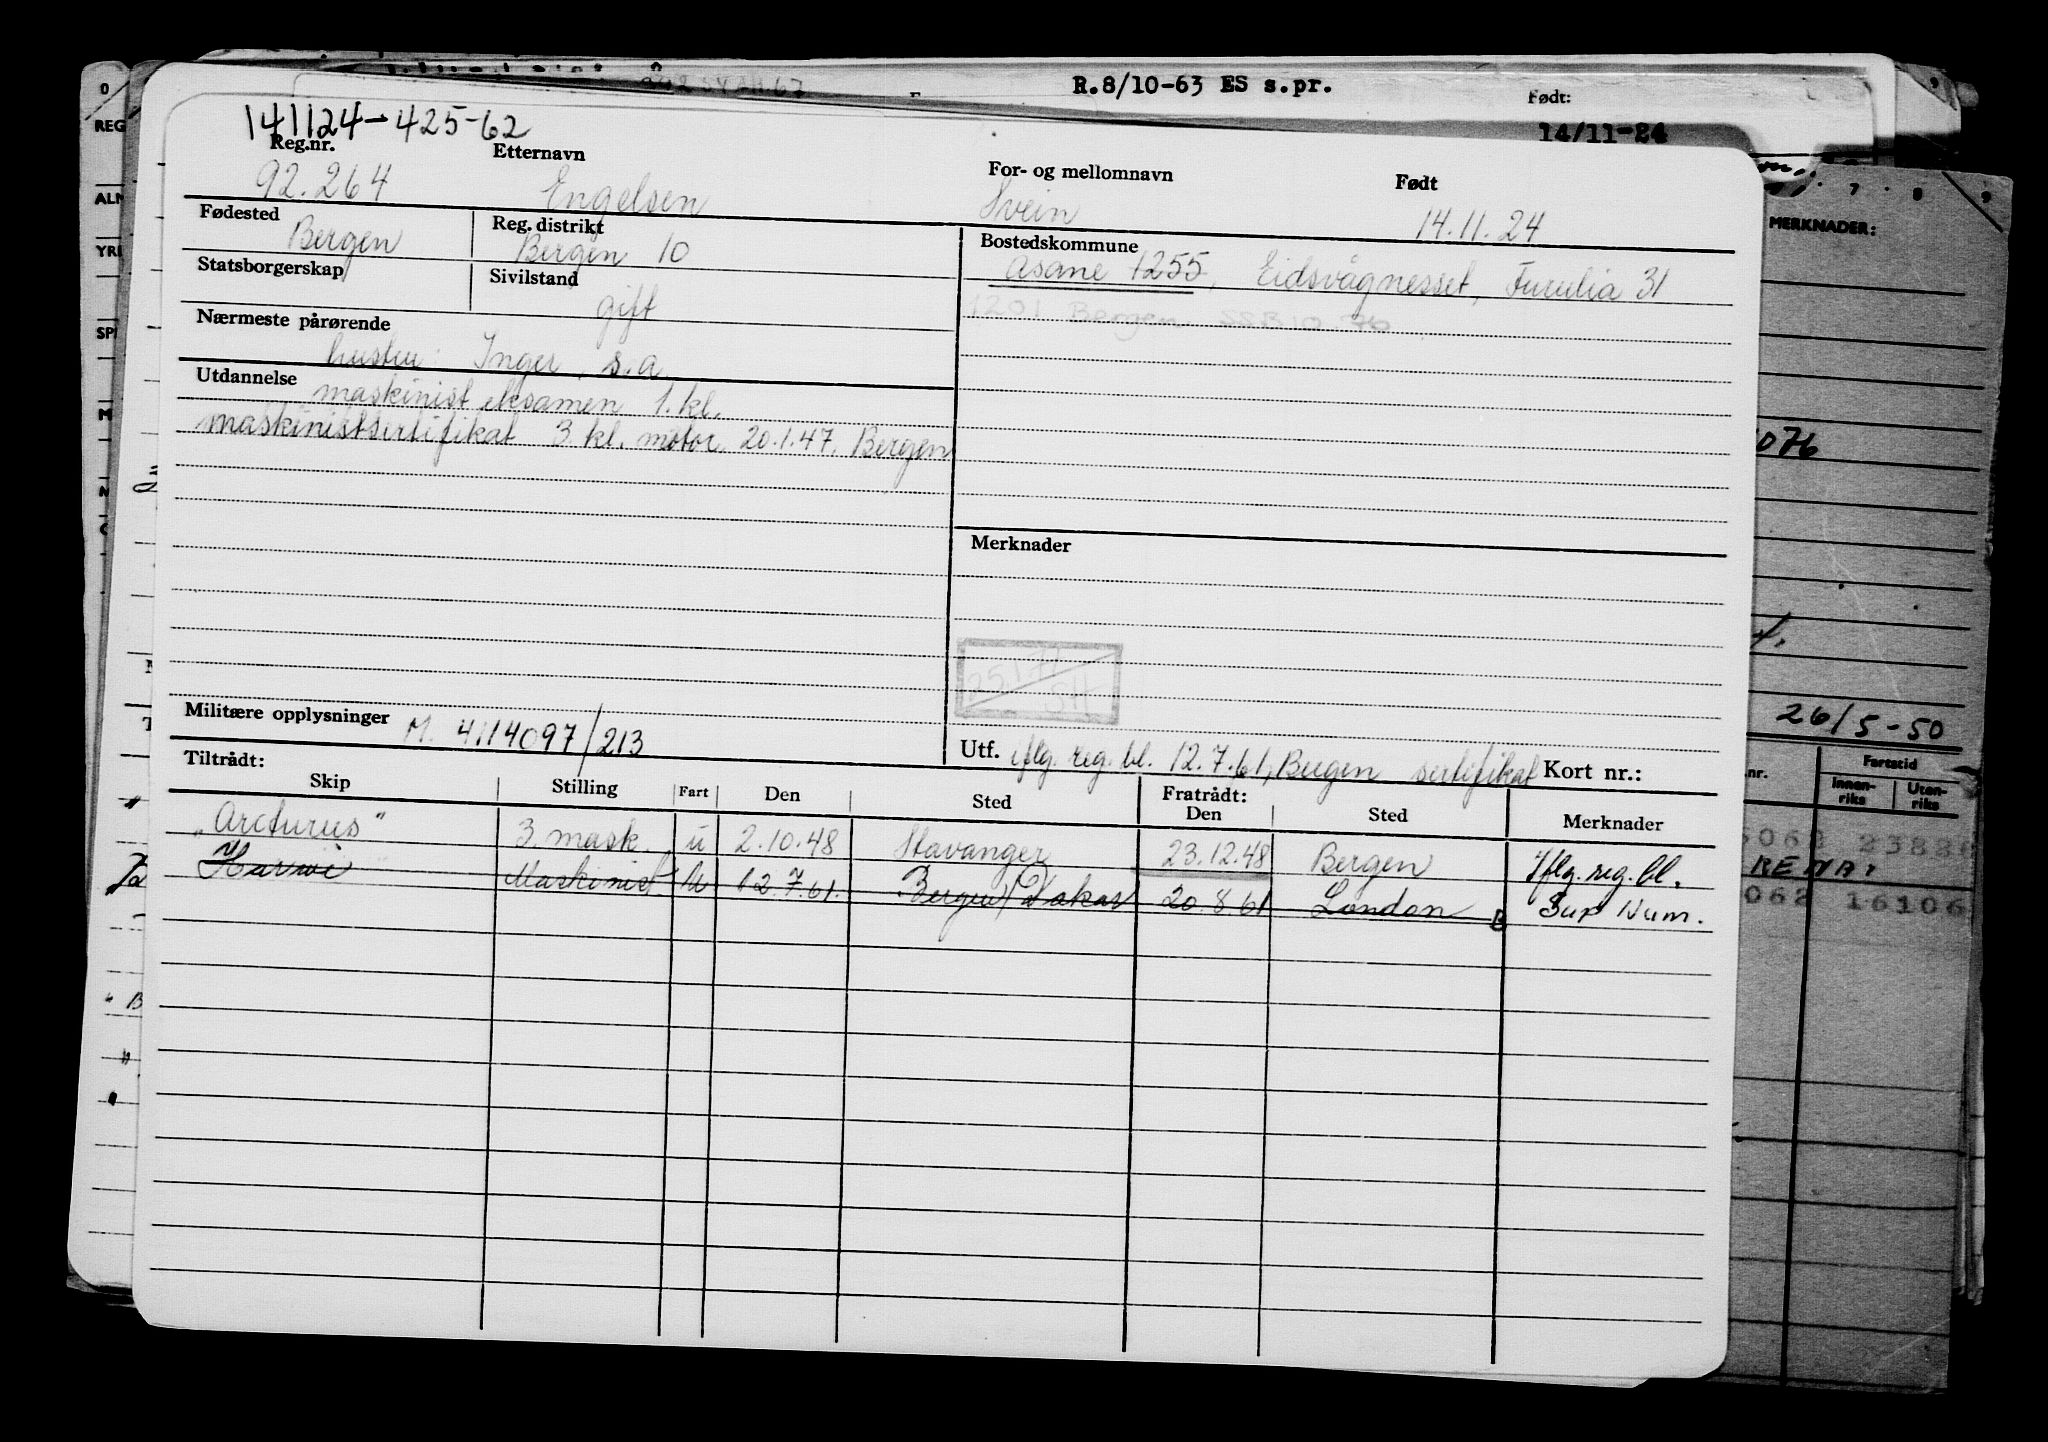 R.8/10-63 ES s.pr.
Født:
14/11-24
141124-425-62
Reg.nr. Etternavn For- og mellomnavn Født
92.264 Engelsen Svein 14.11.24
Fødested Reg. distrikt Bostedskommune
Bergen Bergen 10 Åsane 1255, Eidsvågnesset, Furulia 31
Statsborgerskap Sivilstand
gift
1201 Bergen SSB 10.76
Nærmeste pårørende
hustru: Inger, s.a.
Utdannelse
maskinist eksamen 1. kl.
maskinistsertifikat 3 kl. motor 20.1.47. Bergen
Merknader
25.1.71
SH
Militære opplysninger M. 4114097/213
Utf. iflg. reg. bl. 12.7.61, Bergen sertifikat Kort nr.:
Tiltrådt: Fratrådt:
Skip Stilling Fart Den Sted Den Sted Merknader
"Arcturus" 3. mask. u 2.10.48 Stavanger 23.12.48 Bergen iflg. reg. bl.
Maskinist U 12.7.61. Bergen/Dakar 20.8.61 London B Sup Num.
MERKNADER:
26/5-50
Fartstid
Innen-
riks
Uten-
riks
REG
ALM